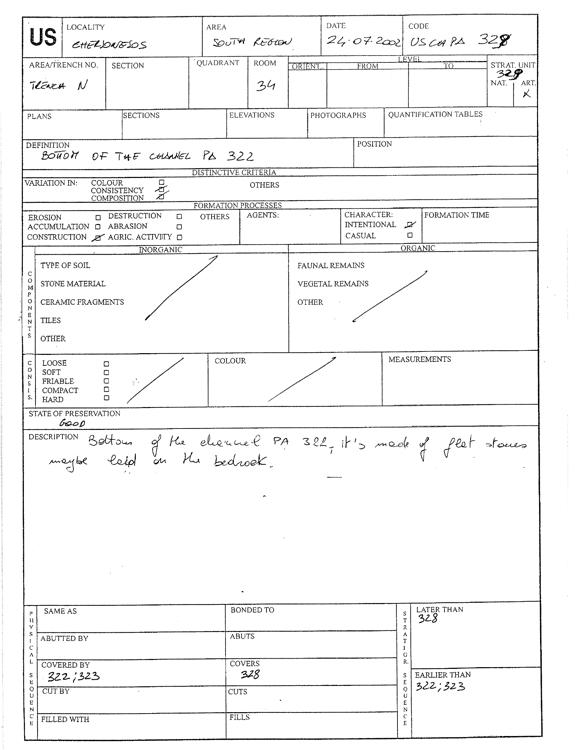 US
LOCALITY
CHERSONESOS
AREA
SOUTH REGION
DATE
24-07-2002
CODE
US CH PA 328
AREA/TRENCH NO.
TRENCH N
SECTION
QUADRANT
ROOM
34
LEVEL
ORIENT.
FROM
TO
STRAT. UNIT
NAT.
ART.
X
PLANS
SECTIONS
ELEVATIONS
PHOTOGRAPHS
QUANTIFICATION TABLES
DEFINITION
BOTTOM OF THE CHANNEL PA 322
POSITION
DISTINCTIVE CRITERIA
VARIATION IN:
COLOUR
CONSISTENCY
COMPOSITION
OTHERS
FORMATION PROCESSES
EROSION
DESTRUCTION
OTHERS
ACCUMULATION
ABRASION
CONSTRUCTION
AGRIC. ACTIVITY
AGENTS:
CHARACTER:
INTENTIONAL
CASUAL
FORMATION TIME
COMPONENTS
INORGANIC
TYPE OF SOIL
STONE MATERIAL
CERAMIC FRAGMENTS
TILES
OTHER
ORGANIC
FAUNAL REMAINS
VEGETAL REMAINS
OTHER
CONSIS.
LOOSE
SOFT
FRIABLE
COMPACT
HARD
COLOUR
MEASUREMENTS
STATE OF PRESERVATION
GOOD
DESCRIPTION
Bottom of the channel PA 322, it's made of flat stones
maybe laid on the bedrock.
PHYSICAL SEQUENCE
SAME AS
BONDED TO
ABUTTED BY
ABUTS
COVERED BY
322; 323
COVERS
328
CUT BY
CUTS
FILLED WITH
FILLS
STRATIGR. SEQUENCE
LATER THAN
328
EARLIER THAN
322; 323